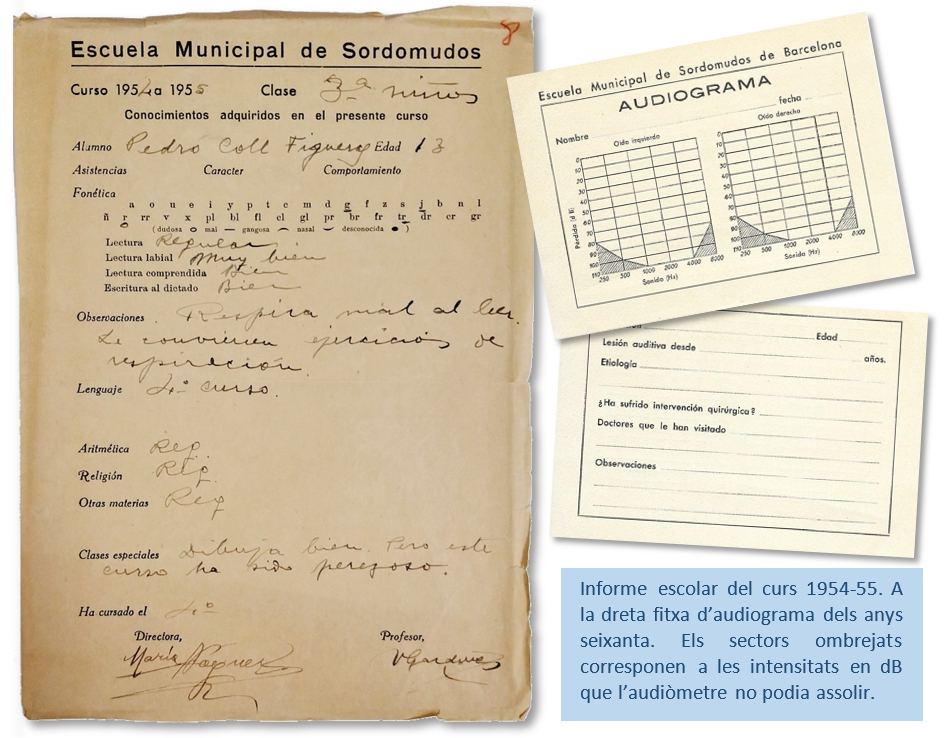 8
Escuela Municipal de Sordomudos
Curso 1954 a 1955 Clase 3ª niños
Conocimientos adquiridos en el presente curso
Alumno Pedro Coll Figueras Edad 13
Asistencias Caracter Comportamiento
Fonética
a o u e i y p t c m d g f z s j b n l
ñ r rr v x pl bl fl cl gl pr br fr tr dr cr gr
(dudosa o mal — gangosa ⌢ nasal ⌣ desconocida ●)
Lectura Regular
Lectura labial Muy bien
Lectura comprendida Bien
Escritura al dictado Bien
Observaciones Respira mal al leer.
Le convienen ejercicios de
respiración.
Lenguaje 4º curso.
Aritmética Reg.
Religión Reg.
Otras materias Reg
Clases especiales Dibuja bien. Pero este
curso ha sido perezoso.
Ha cursado el 4º
Directora, Profesor,
María
Escuela Municipal de Sordomudos de Barcelona
AUDIOGRAMA
Nombre fecha
Oido izquierdo Oido derecho
Perdida (d B)
0 0
10 10
20 20
30 30
40 40
50 50
60 60
70 70
80 80
90 90
100 100
110 110
250 500 1000 2000 4000 8000 250 500 1000 2000 4000 8000
Sonido (Hz) Sonido (Hz)
Edad
Lesión auditiva desde años.
Etiología
¿Ha sufrido intervención quirúrgica?
Doctores que le han visitado
Observaciones
Informe escolar del curs 1954-55. A
la dreta fitxa d’audiograma dels anys
seixanta. Els sectors ombrejats
corresponen a les intensitats en dB
que l’audiòmetre no podia assolir.